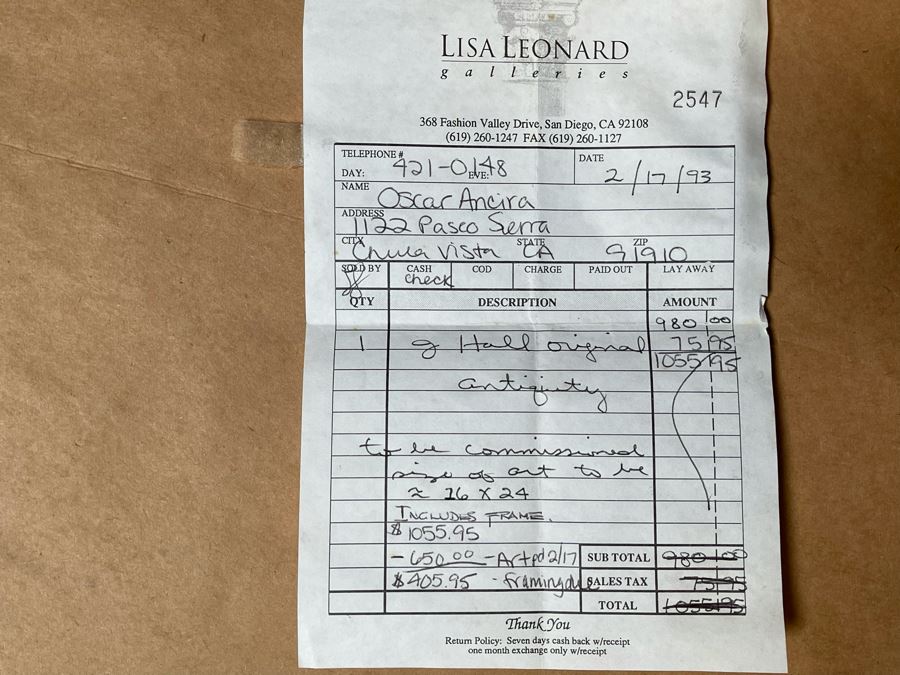 LISA LEONARD
galleries
2547
368 Fashion Valley Drive, San Diego, CA 92108
(619) 260-1247 FAX (619) 260-1127
TELEPHONE #
DAY: 421-0148 EVE:
DATE
2/17/93
NAME
Oscar Ancira
ADDRESS
1122 Paseo Sierra
CITY STATE ZIP
Chula Vista CA 91910
SOLD BY CASH COD CHARGE PAID OUT LAY AWAY
check
QTY DESCRIPTION AMOUNT
980 00
1 g Hall original 75 95
1055 95
antiquity
to be commissioned
size of art to be
≈ 16 X 24
INCLUDES FRAME.
$1055.95
- 650.00 - Art pd 2/17 SUB TOTAL 980 00
$405.95 - framing due SALES TAX 75 95
TOTAL 1055 95
Thank You
Return Policy: Seven days cash back w/receipt
one month exchange only w/receipt